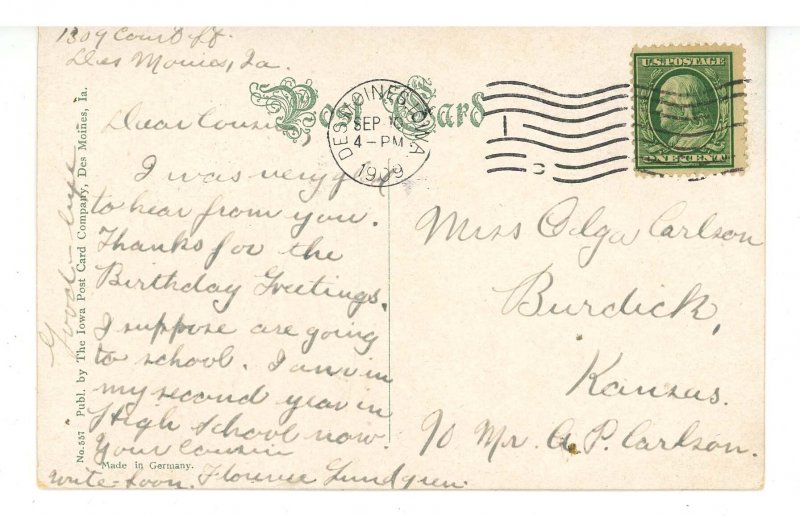 1309 Court St.
Des Moines, Ia.
Post Card
DES MOINES, IOWA
SEP 10
4-PM
1909
U.S.POSTAGE
ONE CENT
Dear Cousin,
I was very glad
to hear from you.
Thanks for the
Birthday Greetings.
I suppose are going
to school. I am in
my second year in
High School now.
Your cousin
Florence Lundgren.
write-soon.
Good-bye
Miss Olga Carlson
Burdick,
Kansas.
% Mr. A. P. Carlson.
No. 557 Publ. by The Iowa Post Card Company, Des Moines, Ia.
Made in Germany.